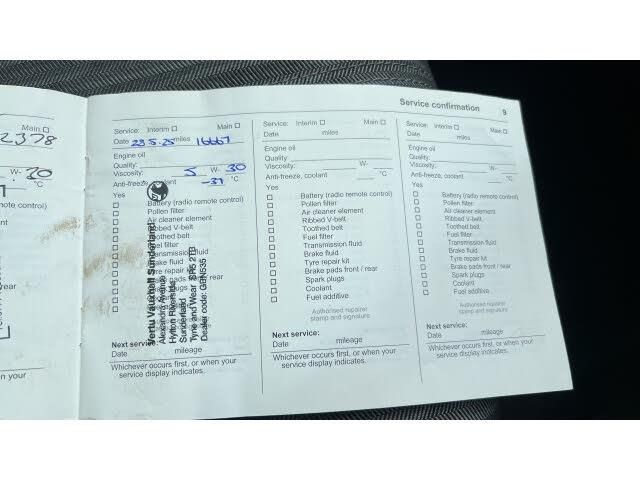 Service confirmation 9
Main ☐
2378
W- 30
°C
remote control)
rear
n your
Service: Interim ☐ Main ☐
Date 23.5.25 miles 16667
Engine oil
Quality:
Viscosity: 5 W- 30
Anti-freeze, coolant -37 °C
Yes
☐ Battery (radio remote control)
☐ Pollen filter
☐ Air cleaner element
☐ Ribbed V-belt
☐ Toothed belt
☐ Fuel filter
☐ Transmission fluid
☐ Brake fluid
☐ Tyre repair kit
☐ Brake pads front / rear
☐ Spark plugs
☐ Coolant
☐ Fuel additive
Vertu Vauxhall Sunderland
Alexandra Avenue
Hylton Riverside
Sunderland
Tyne and Wear SR5 2TB
Next service:
Date mileage
Whichever occurs first, or when your
service display indicates.
Service: Interim ☐ Main ☐
Date miles
Engine oil
Quality:
Viscosity: W-
Anti-freeze, coolant °C
Yes
☐ Battery (radio remote control)
☐ Pollen filter
☐ Air cleaner element
☐ Ribbed V-belt
☐ Toothed belt
☐ Fuel filter
☐ Transmission fluid
☐ Brake fluid
☐ Tyre repair kit
☐ Brake pads front / rear
☐ Spark plugs
☐ Coolant
☐ Fuel additive
Authorised repairer
stamp and signature
Next service:
Date mileage
Whichever occurs first, or when your
service display indicates.
Service: Interim ☐ Main ☐
Date miles
Engine oil
Quality:
Viscosity: W-
Anti-freeze, coolant °C
Yes
☐ Battery (radio remote control)
☐ Pollen filter
☐ Air cleaner element
☐ Ribbed V-belt
☐ Toothed belt
☐ Fuel filter
☐ Transmission fluid
☐ Brake fluid
☐ Tyre repair kit
☐ Brake pads front / rear
☐ Spark plugs
☐ Coolant
☐ Fuel additive
Authorised repairer
stamp and signature
Next service:
Date mileage
Whichever occurs first, or when your
service display indicates.